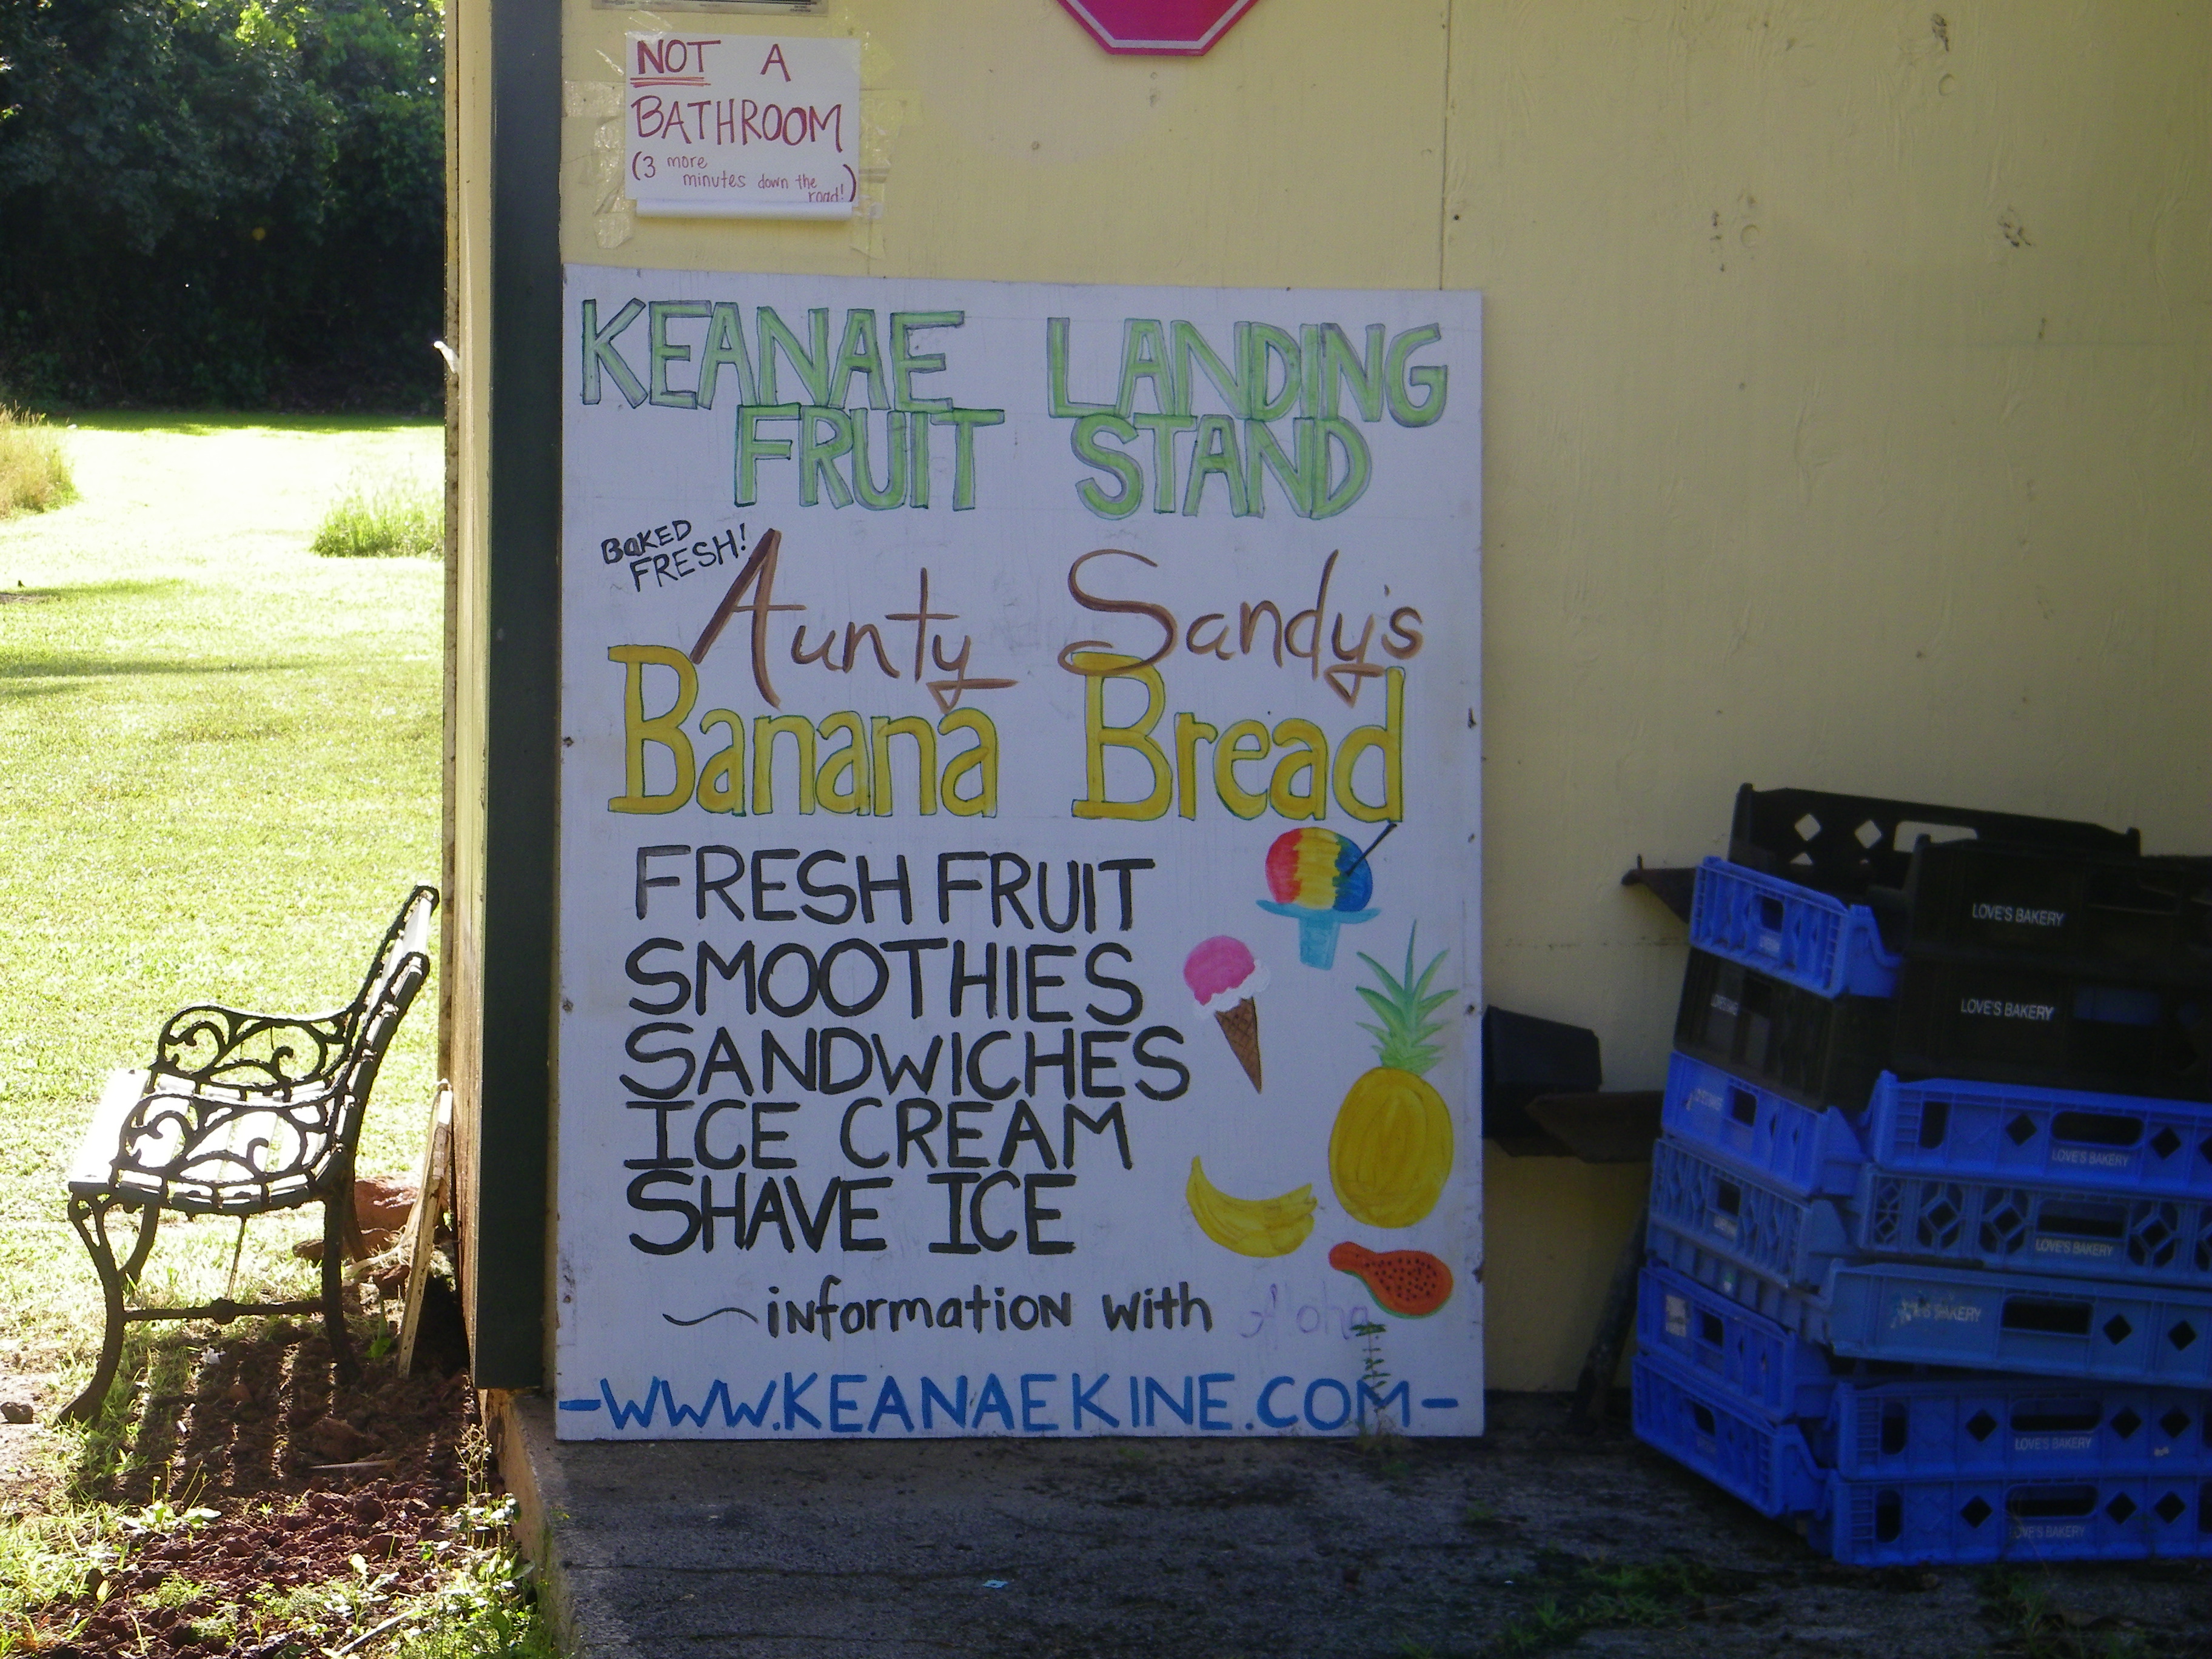 NOT A
BATHROOM
(3 more
minutes down the
road!)
KEANAE LANDING
FRUIT STAND
BAKED
FRESH!
Aunty Sandy's
Banana Bread
FRESH FRUIT
SMOOTHIES
SANDWICHES
ICE CREAM
SHAVE ICE
~information with Aloha
-WWW.KEANAEKINE.COM-
LOVE'S BAKERY
LOVE'S BAKERY
LOVE'S BAKERY
LOVE'S BAKERY
LOVE'S BAKERY
LOVE'S BAKERY
LOVE'S BAKERY